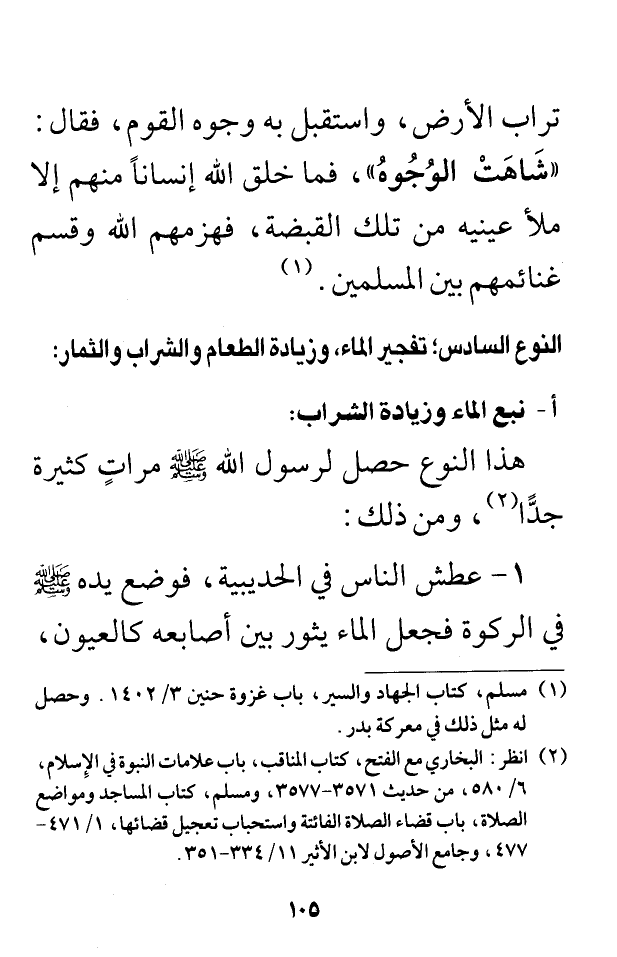 تراب الأرض، واستقبل به وجوه القوم، فقال:
«شَاهَتْ الوُجُوهُ»، فما خلق الله إنساناً منهم إلا
ملأ عينيه من تلك القبضة، فهزمهم الله وقسم
غنائمهم بين المسلمين.(١)
النوع السادس؛ تفجير الماء، وزيادة الطعام والشراب والثمار:
أ- نبع الماء وزيادة الشراب:
هذا النوع حصل لرسول الله ﷺ مراتٍ كثيرة
جدًّا(٢)، ومن ذلك:
١- عطش الناس في الحديبية، فوضع يده ﷺ
في الركوة فجعل الماء يثور بين أصابعه كالعيون،
(١) مسلم، كتاب الجهاد والسير، باب غزوة حنين ٣/ ١٤٠٢. وحصل
له مثل ذلك في معركة بدر.
(٢) انظر: البخاري مع الفتح، كتاب المناقب، باب علامات النبوة في الإسلام،
٦/ ٥٨٠، من حديث ٣٥٧١-٣٥٧٧، ومسلم، كتاب المساجد ومواضع
الصلاة، باب قضاء الصلاة الفائتة واستحباب تعجيل قضائها، ١/ ٤٧١-
٤٧٧، وجامع الأصول لابن الأثير ١١/ ٣٣٤-٣٥١.
١٠٥